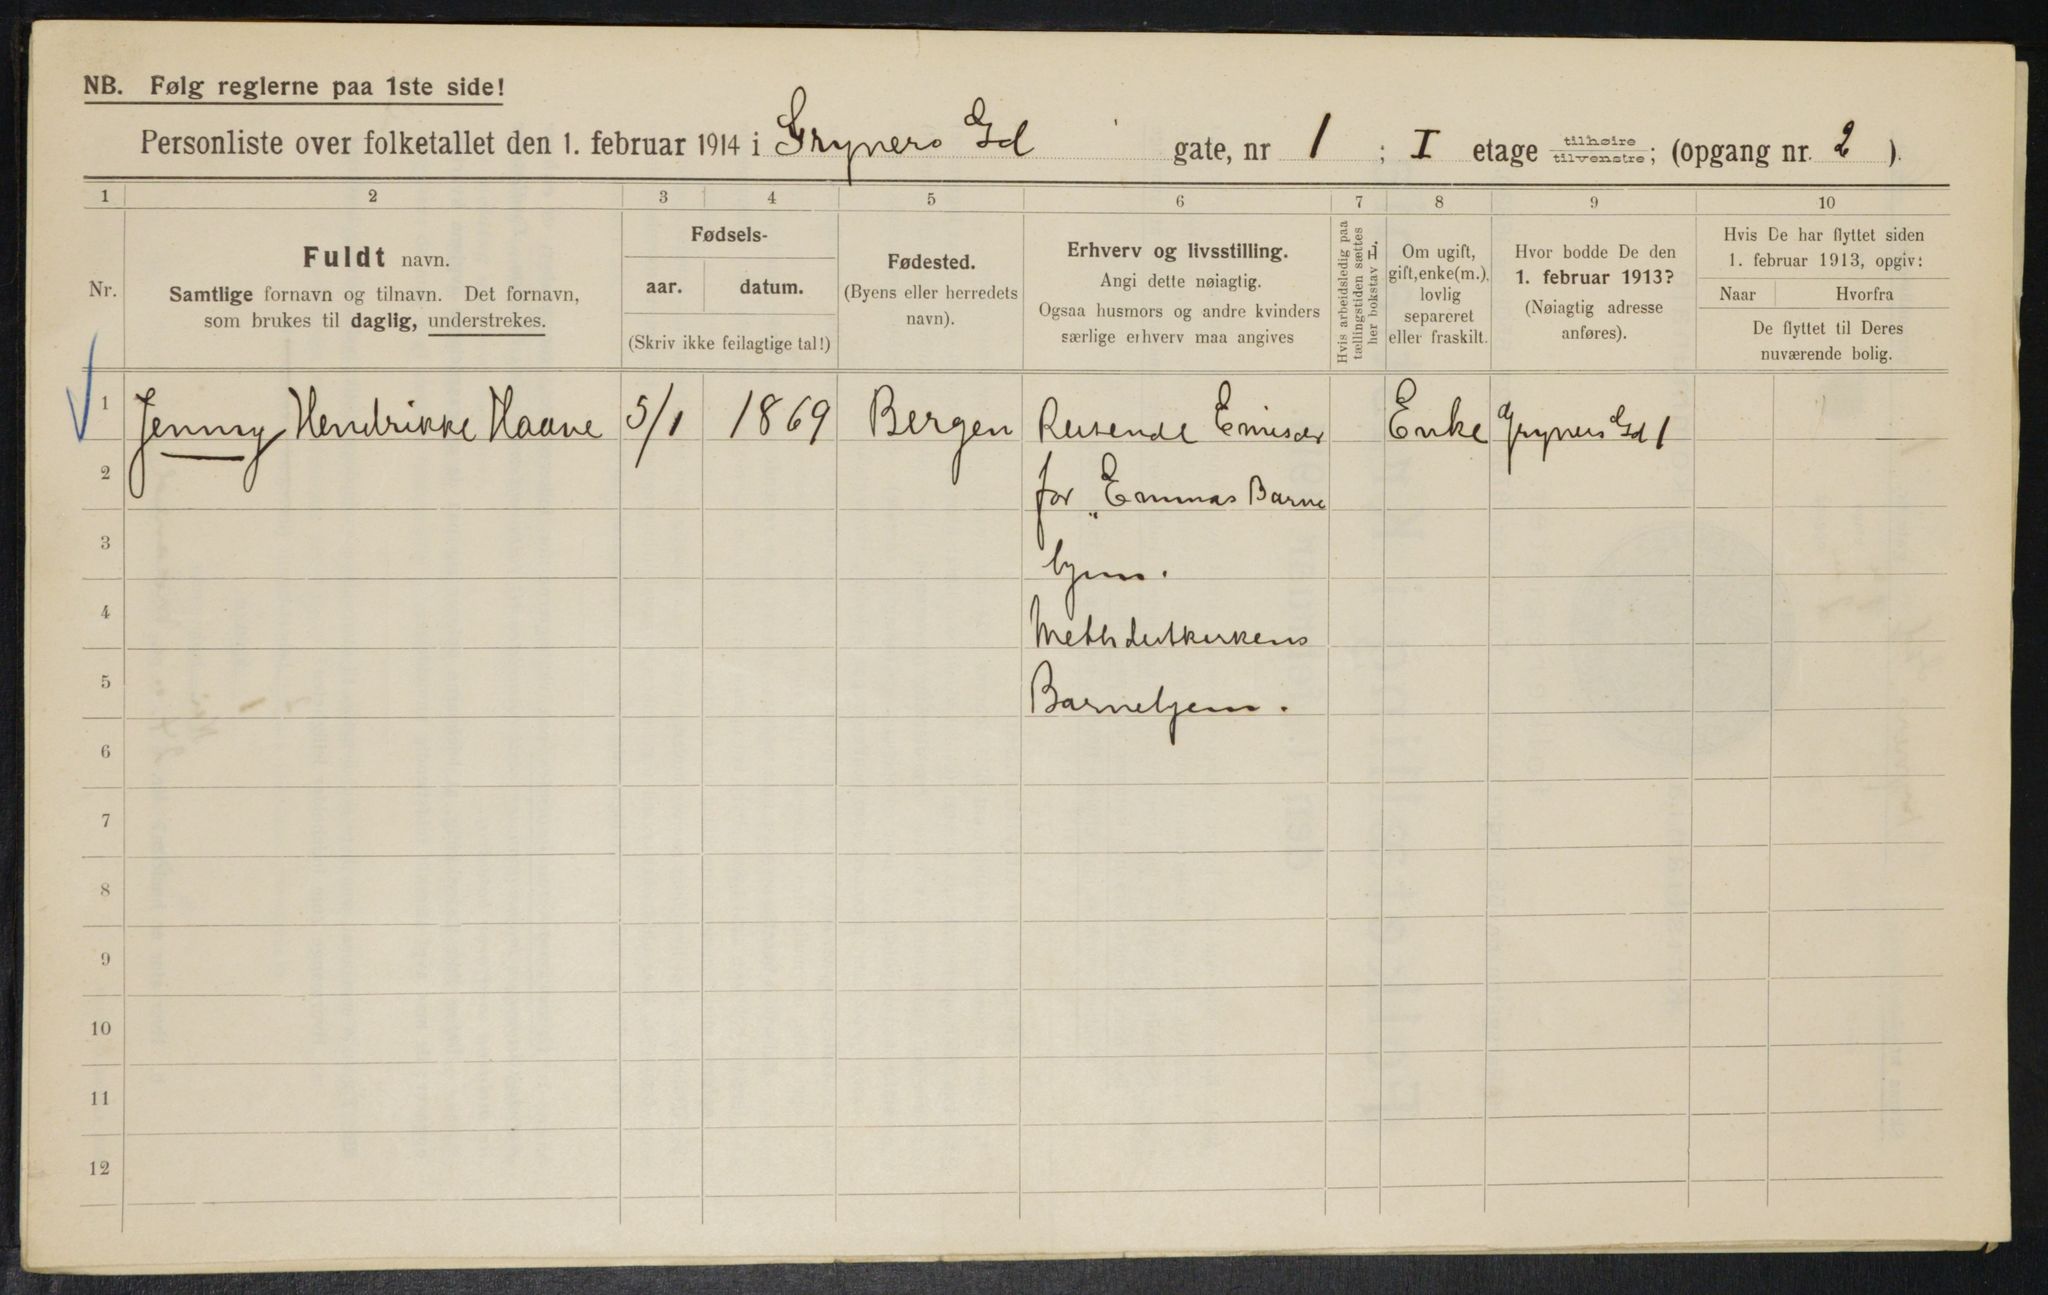 NB. Følg reglerne paa 1ste side!
Personliste over folketallet den 1. februar 1914 i Gryners Gd gate, nr 1 ; I etage tilhøire tilvenstre; (opgang nr. 2 ).
1 2 3 4 5 6 7 8 9 10
Nr.
Fuldt navn.
Samtlige fornavn og tilnavn. Det fornavn,
som brukes til daglig, understrekes.
Fødsels-
aar. datum.
(Skriv ikke feilagtige tal!)
Fødested.
(Byens eller herredets
navn).
Erhverv og livsstilling.
Angi dette nøiagtig.
Ogsaa husmors og andre kvinders
særlige erhverv maa angives
Hvis arbeidsledig paa
tællingstiden sættes
her bokstav L.
Om ugift,
gift, enke(m.),
lovlig
separeret
eller fraskilt.
Hvor bodde De den
1. februar 1913?
(Nøiagtig adresse
anføres).
Hvis De har flyttet siden
1. februar 1913, opgiv:
Naar Hvorfra
De flyttet til Deres
nuværende bolig.
1 Jenny Hendrikke Haave 5/1 1869 Bergen Reisende Emisær Enke Gryners Gd 1
2 for „Emmas Barne
3 hjem.
4 Methdistkirkens
5 Barnehjem.
6
7
8
9
10
11
12